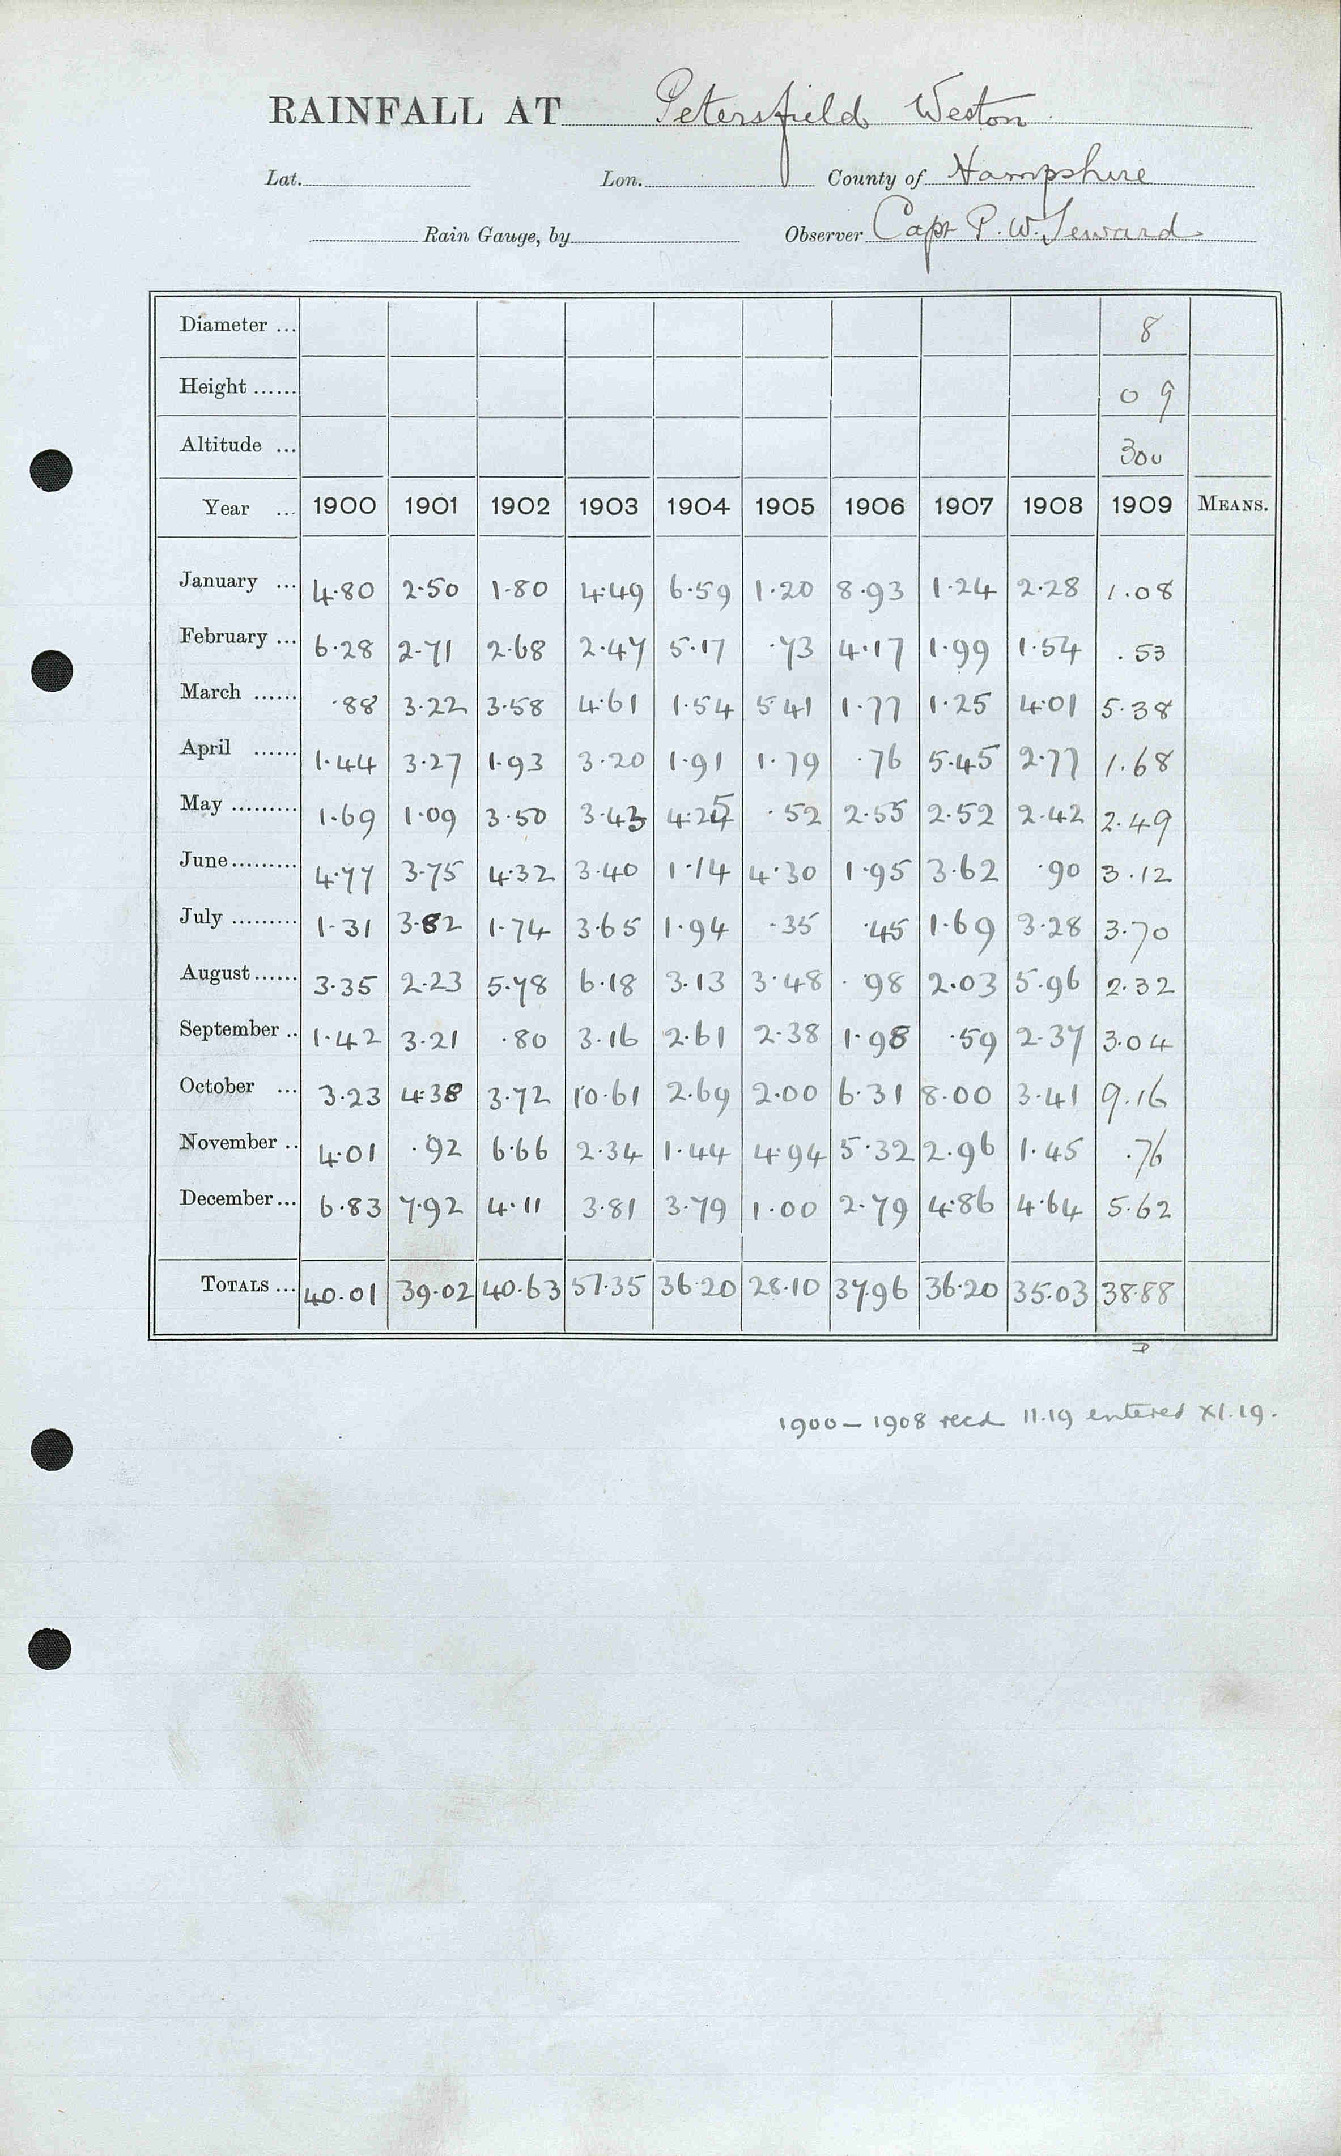 RAINFALL AT Petersfield Weston
Lat. Lon. County of Hampshire
Rain Gauge, by Observer Capt P. W. Seward
Diameter ... 8
Height ...... 0 9
Altitude ... 300
Year ... 1900 1901 1902 1903 1904 1905 1906 1907 1908 1909 MEANS.
January ... 4.80 2.50 1.80 4.49 6.59 1.20 8.93 1.24 2.28 1.08
February ... 6.28 2.71 2.68 2.47 5.17 .73 4.17 1.99 1.54 .53
March ...... .88 3.22 3.58 4.61 1.54 5 41 1.77 1.25 4.01 5.38
April ...... 1.44 3.27 1.93 3.20 1.91 1.79 .76 5.45 2.77 1.68
May ......... 1.69 1.09 3.50 3.43 4.25 .52 2.55 2.52 2.42 2.49
June......... 4.77 3.75 4.32 3.40 1.14 4.30 1.95 3.62 .90 3.12
July ......... 1.31 3.82 1.74 3.65 1.94 .35 .45 1.69 3.28 3.70
August...... 3.35 2.23 5.78 6.18 3.13 3.48 .98 2.03 5.96 2.32
September .. 1.42 3.21 .80 3.16 2.61 2.38 1.98 .59 2.37 3.04
October ... 3.23 4.38 3.72 10.61 2.69 2.00 6.31 8.00 3.41 9.16
November .. 4.01 .92 6.66 2.34 1.44 4.94 5.32 2.96 1.45 .76
December... 6.83 7.92 4.11 3.81 3.79 1.00 2.79 4.86 4.64 5.62
TOTALS ... 40.01 39.02 40.63 51.35 36.20 28.10 37.96 36.20 35.03 38.88
1900 — 1908 recd 11.19 entered XI.19.